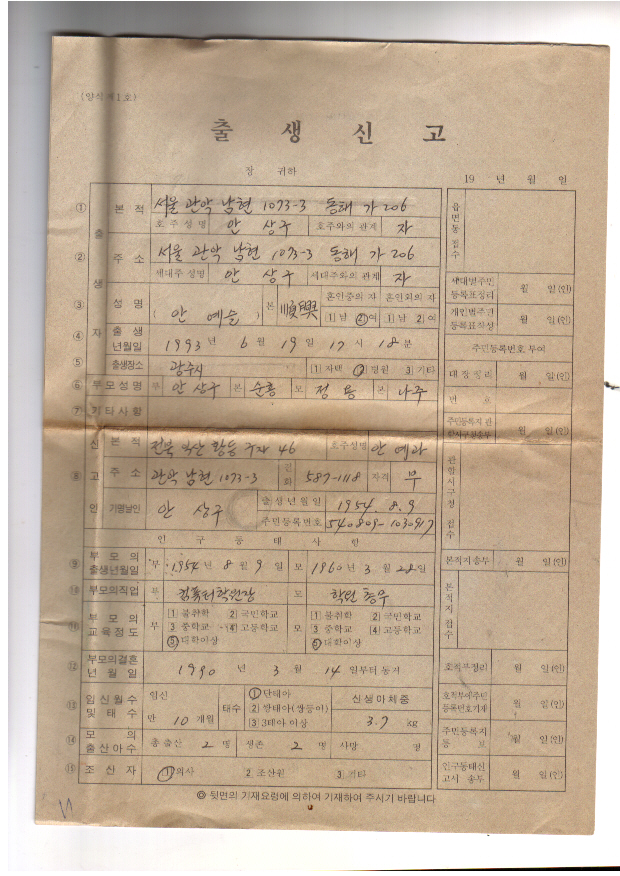 (양식 제1호)
출 생 신 고
장 귀하
19 년 월 일
① 본 적 서울 관악 남현 1073-3 동해 가 206
호 주 성 명 안 상구 호주와의 관계 자
② 주 소 서울 관악 남현 1073-3 동해 가 206
세대주 성명 안 상구 세대주와의 관계 자
출 생 자
③ 성 명 (안 예슬) 본 順興 혼인중의 자 혼인외의 자
1 남 2 여 1 남 2 여
④ 출 생 년월일 1993 년 6 월 19 일 17 시 18 분
⑤ 출생장소 광주시 1 자택 2 병원 3 기타
⑥ 부모성명 부 안 상구 본 순흥 모 정 본 나주
⑦ 기타사항
신 고 인
⑧ 본 적 전북 익산 황등 46 호주성명 안
주 소 관악 남현 1073-3 전화 587-1118 자격 부
기명날인 안 상구 출생년월일 1954. 8. 9
주민등록번호 540809-1030917
인 구 동 태 사 항
⑨ 부 모 의 출생년월일 부 1954 년 8 월 9 일 모 1960 년 3 월 28 일
⑩ 부모의직업 부 컴퓨터학원장 모 학원 총무
⑪ 부 모 의 교육정도 부 1 불취학 2 국민학교 모 1 불취학 2 국민학교
3 중학교 4 고등학교 3 중학교 4 고등학교
5 대학이상 5 대학이상
⑫ 부모의결혼 년 월 일 1990 년 3 월 14 일부터 동거
⑬ 임신월수 및 태 수 임신 만 10 개월 태수 1 단태아
2 쌍태아(쌍둥이)
3 3태아 이상
신생아체중 3.7 kg
⑭ 모 의 출산아수 총 출산 2 명 생존 2 명 사망 명
⑮ 조 산 자 1 의사 2 조산원 3 기타
읍면동 접수
세대별주민등록표정리 월 일(인)
개인별주민등록표작성 월 일(인)
주민등록번호 부여
대 장 정 리 월 일(인)
번 호
월 일(인)
관할시구청 접수
본적지송부 월 일(인)
본적지 접수
호적부정리 월 일(인)
호적부에주민등록번호기재 월 일(인)
주민등록지 통 보 월 일(인)
인구동태신고서 송부 월 일(인)
◎ 뒷면의 기재요령에 의하여 기재하여 주시기 바랍니다